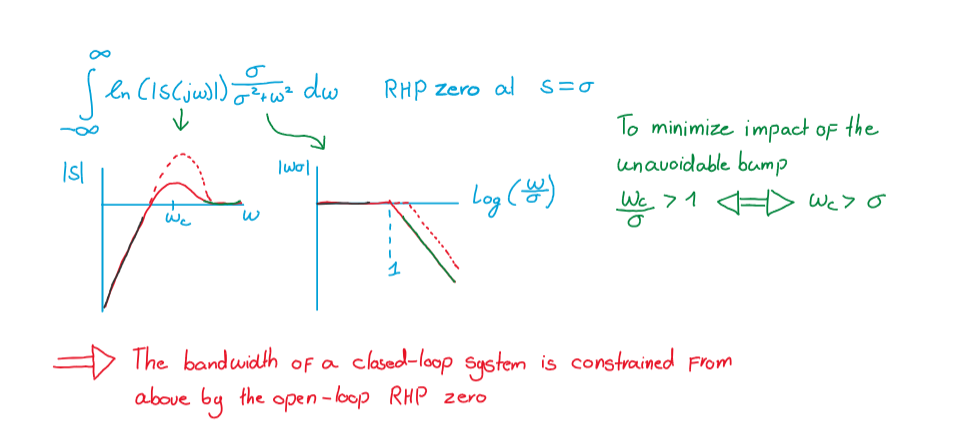 ∞
∫ ln(|S(jω)|) σ/(σ²+ω²) dω RHP zero at s=σ
-∞
To minimize impact of the
unavoidable bump
ωc/σ > 1 ⟺ ωc > σ
|S|
ωc
ω
|Wσ|
Log(ω/σ)
1
⟹ The bandwidth of a closed-loop system is constrained from
above by the open-loop RHP zero